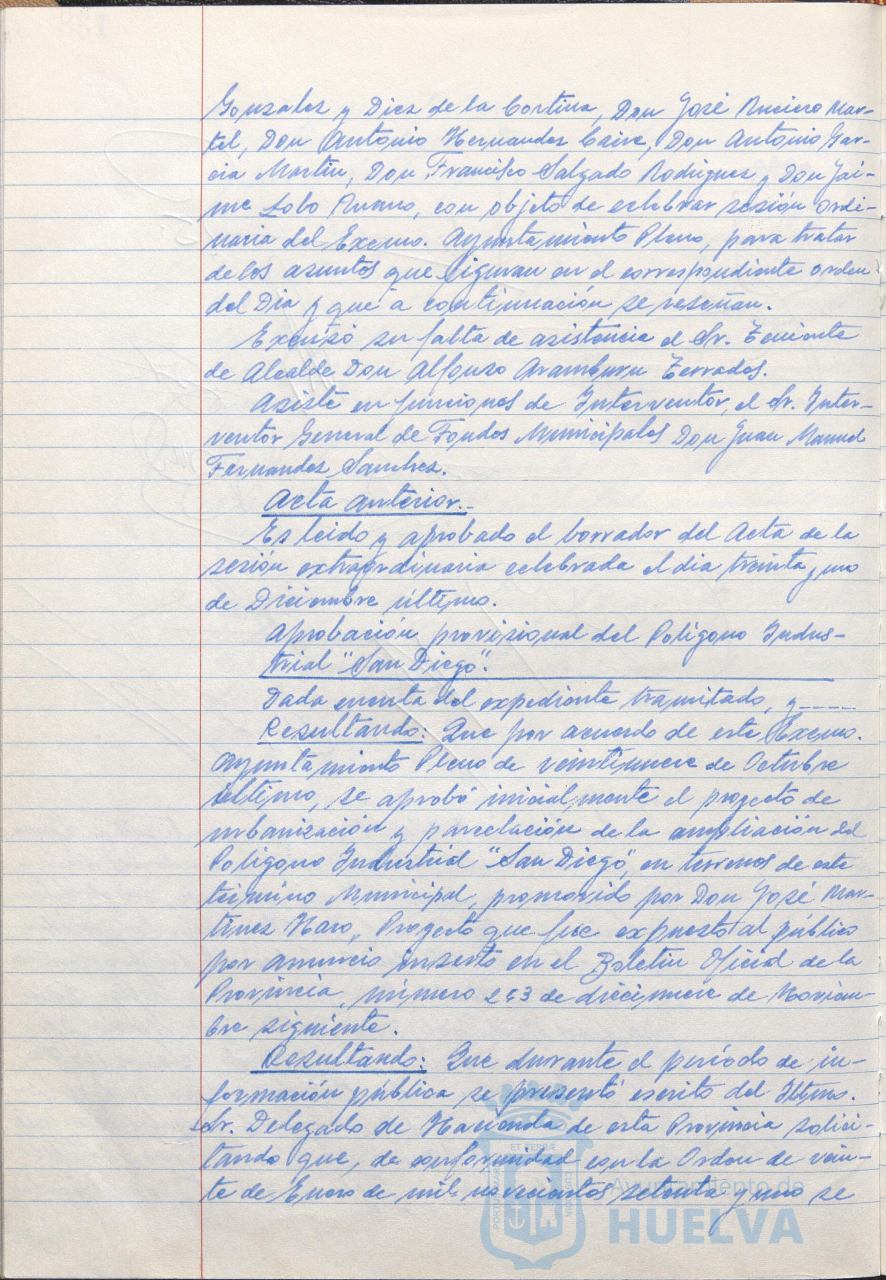 Gonzalez y Diez de la Cortina, Don José Muciero Mar-
tel, Don Antonio Hernandez Caire, Don Antonio Gar-
cia Martin, Don Francisco Salgado Rodriguez y Don Jai-
me Lobo, con objeto de celebrar sesión ordi-
naria del Excmo. Ayuntamiento Pleno, para tratar
de los asuntos que figuran en el correspondiente orden
del Dia y que a continuación se reseñan.
Excusó su falta de asistencia el Sr. Teniente
de Alcalde Don Alfonso Aramburu Terrades.
Asiste en funciones de Interventor, el Sr. Inter-
ventor General de Fondos Municipales Don Juan Manuel
Fernandez Sanchez.
Acta anterior.-
Es leido y aprobado el borrador del Acta de la
sesión extraordinaria celebrada el dia treinta y uno
de Diciembre último.
Aprobación provisional del Poligono Indus-
trial "San Diego".
Dada cuenta del expediente tramitado, y-----
Resultando: Que por acuerdo de este Excmo.
Ayuntamiento Pleno de veintinueve de Octubre
último, se aprobó inicialmente el proyecto de
urbanización y parcelación de la ampliación del
Poligono Industrial "San Diego", en terrenos de este
término Municipal, promovido por Don José Mar-
tinez Haro, Proyecto que fue expuesto al público
por anuncio inserto en el Boletin Oficial de la
Provincia, número 263 de diecinueve de Noviem-
bre siguiente.
Resultando: Que durante el período de in-
formación pública se presentó escrito del Iltmo.
Sr. Delegado de Hacienda de esta Provincia solici-
tando que, de conformidad con la Orden de vein-
te de Enero de mil novecientos setenta y uno se
Ayuntamiento de
HUELVA